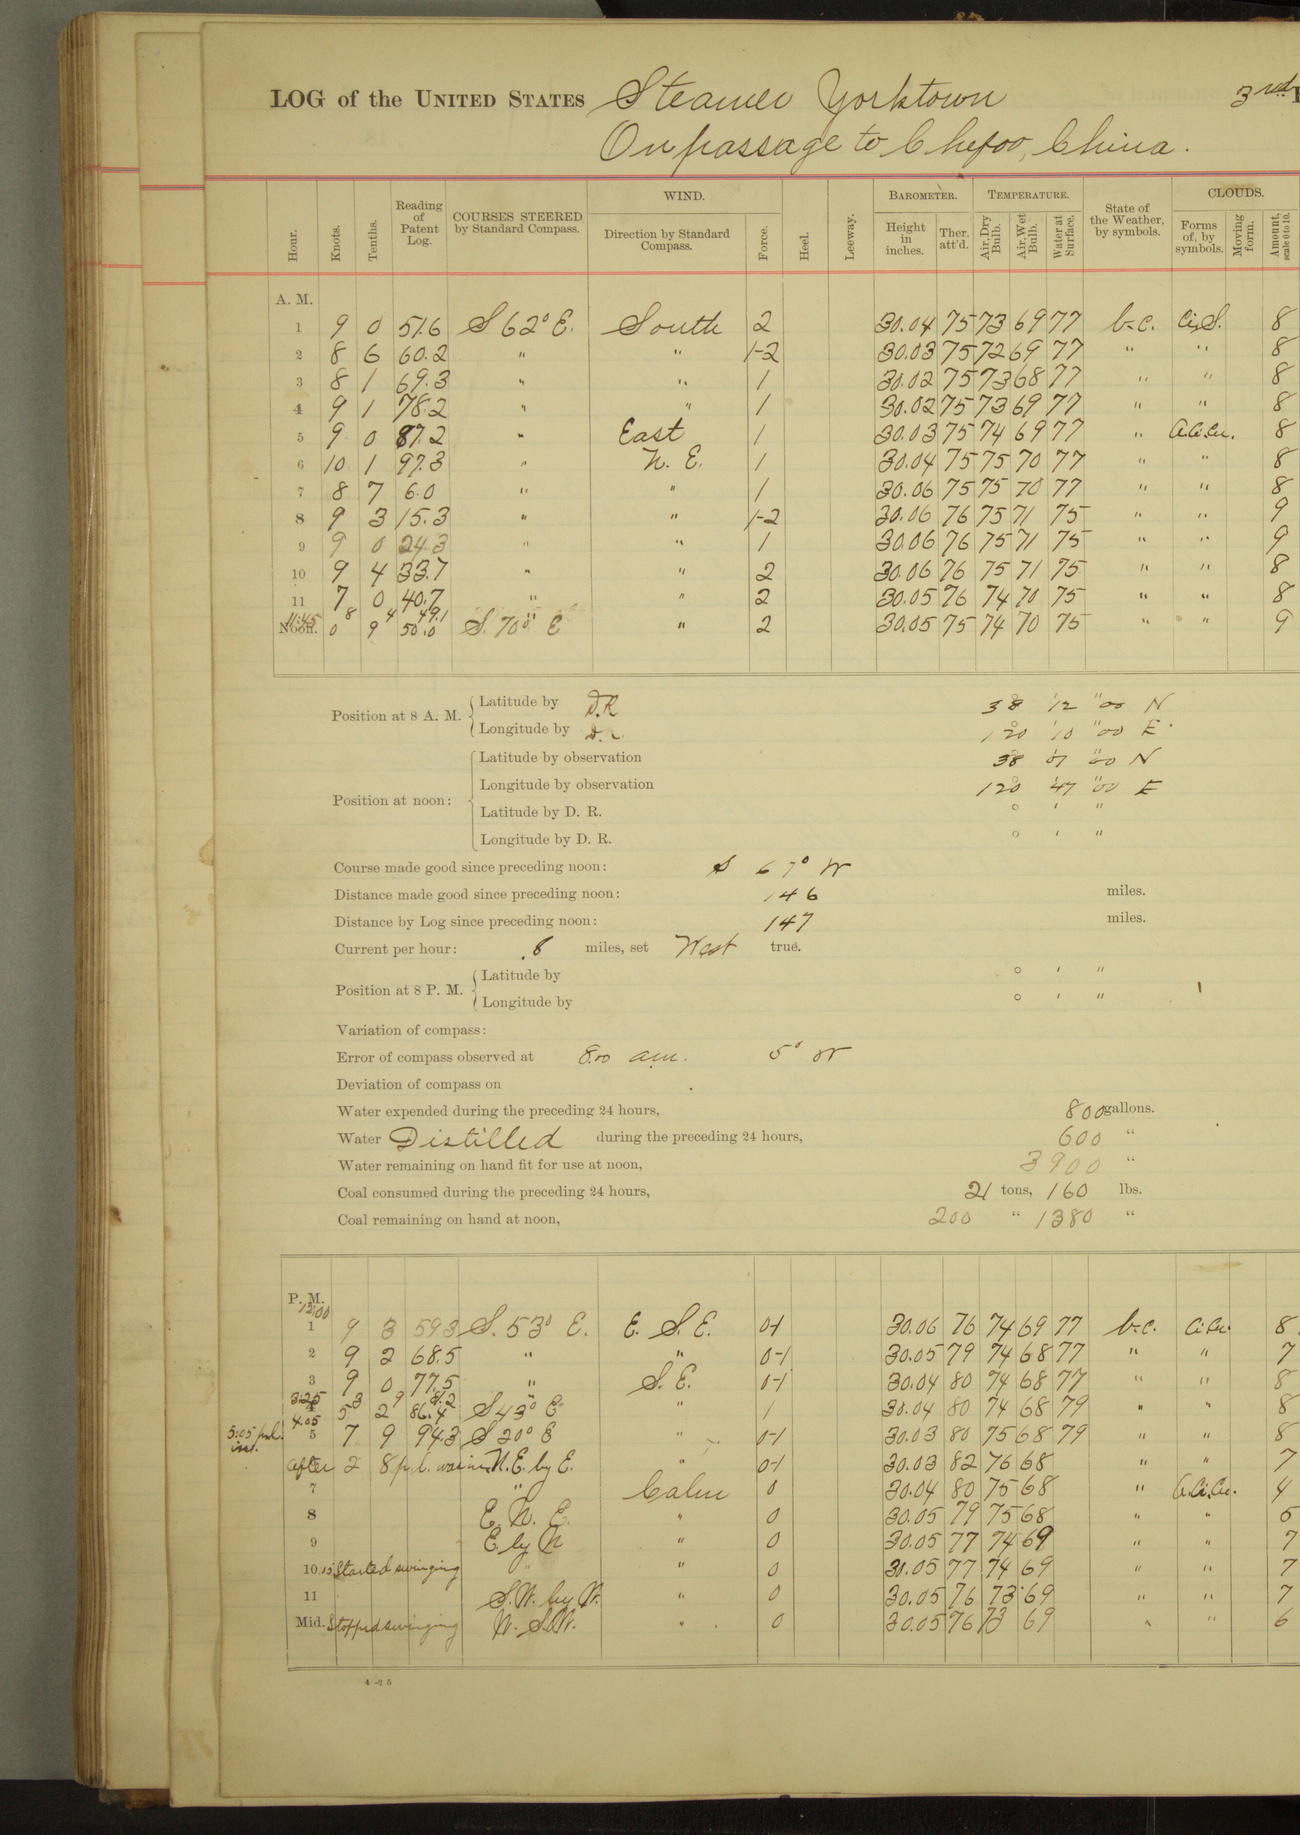 LOG of the UNITED STATES Steamer Yorktown 3rd
On passage to Chefoo, China.
Hour. Knots. Tenths. Reading of Patent Log. COURSES STEERED by Standard Compass. WIND. Direction by Standard Compass. Force. Heel. Leeway. BAROMETER. Height in inches. Ther. att'd. TEMPERATURE. Air, Dry Bulb. Air, Wet Bulb. Water at Surface. State of the Weather, by symbols. CLOUDS. Forms of, by symbols. Moving form. Amount, scale 0 to 10.
A. M.
1 9 0 51.6 S 62° E. South 2 30.04 75 73 69 77 b.c. Ci.S. 8
2 8 6 60.2 " " 1-2 30.03 75 72 69 77 " " 8
3 8 1 69.3 " " 1 30.02 75 73 68 77 " " 8
4 9 1 78.2 " " 1 30.02 75 73 69 77 " " 8
5 9 0 87.2 " East 1 30.03 75 74 69 77 " A.Ci.Cu. 8
6 10 1 97.3 " N. E. 1 30.04 75 75 70 77 " " 8
7 8 7 6.0 " " 1 30.06 75 75 70 77 " " 8
8 9 3 15.3 " " 1-2 30.06 76 75 71 75 " " 9
9 9 0 24.3 " " 1 30.06 76 75 71 75 " " 9
10 9 4 33.7 " " 2 30.06 76 75 71 75 " " 8
11 7 0 40.7 " " 2 30.05 76 74 70 75 " " 8
11:45 8 4 49.1 "
Noon. 0 9 50.0 S. 70° E " 2 30.05 75 74 70 75 " " 9
Position at 8 A. M. Latitude by D.R 38° 12' 00" N
Longitude by D.R. 120° 10' 00" E.
Position at noon: Latitude by observation 38° 07' 00" N
Longitude by observation 120° 47' 00" E
Latitude by D. R. ° ' "
Longitude by D. R. ° ' "
Course made good since preceding noon: S 67° W
Distance made good since preceding noon: 146 miles.
Distance by Log since preceding noon: 147 miles.
Current per hour: .8 miles, set West true.
Position at 8 P. M. Latitude by ° ' "
Longitude by ° ' "
Variation of compass:
Error of compass observed at 8.00 a.m. 5° W
Deviation of compass on
Water expended during the preceding 24 hours, 800 gallons.
Water Distilled during the preceding 24 hours, 600 "
Water remaining on hand fit for use at noon, 3900 "
Coal consumed during the preceding 24 hours, 21 tons, 160 lbs.
Coal remaining on hand at noon, 200 " 1380 "
P. M.
12:00
1 9 3 59.3 S. 53° E. E. S. E. 0-1 30.06 76 74 69 77 b.c. Ci.Cu. 8
2 9 2 68.5 " " 0-1 30.05 79 74 68 77 " " 7
3 9 0 77.5 " S. E. 0-1 30.04 80 74 68 77 " " 8
3:25 3 9 81.2 "
4 4.05 5 2 86.4 S 43° E " 1 30.04 80 74 68 79 " " 8
5:05 p.l. in. 5 7 9 94.3 S 20° E " 0-1 30.03 80 75 68 79 " " 8
after 2 8 p.l. was in N.E. by E. " 0-1 30.03 82 76 68 " " 7
7 " Calm 0 30.04 80 75 68 " A.Ci.Cu. 4
8 E. N. E. " 0 30.05 79 75 68 " " 5
9 E. by N " 0 30.05 77 74 69 " " 7
10.15 Started swinging " " 0 30.05 77 74 69 " " 7
11 S.W. by W. " 0 30.05 76 73 69 " " 7
Mid. Stopped swinging W. S.W. " 0 30.05 76 73 69 " " 6
4-25